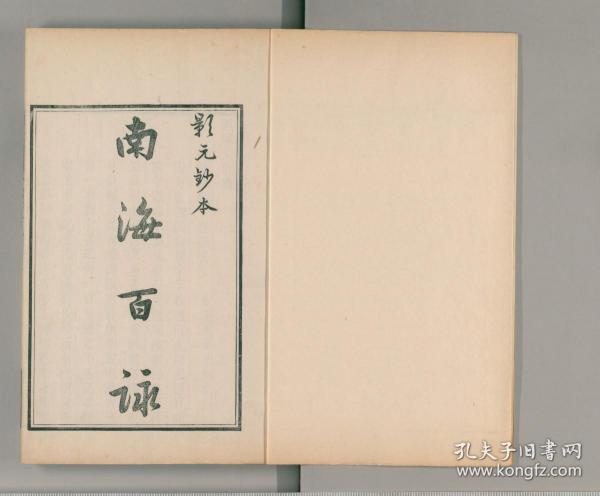 影元鈔本
南海百詠
孔夫子旧书网
www.kongfz.com